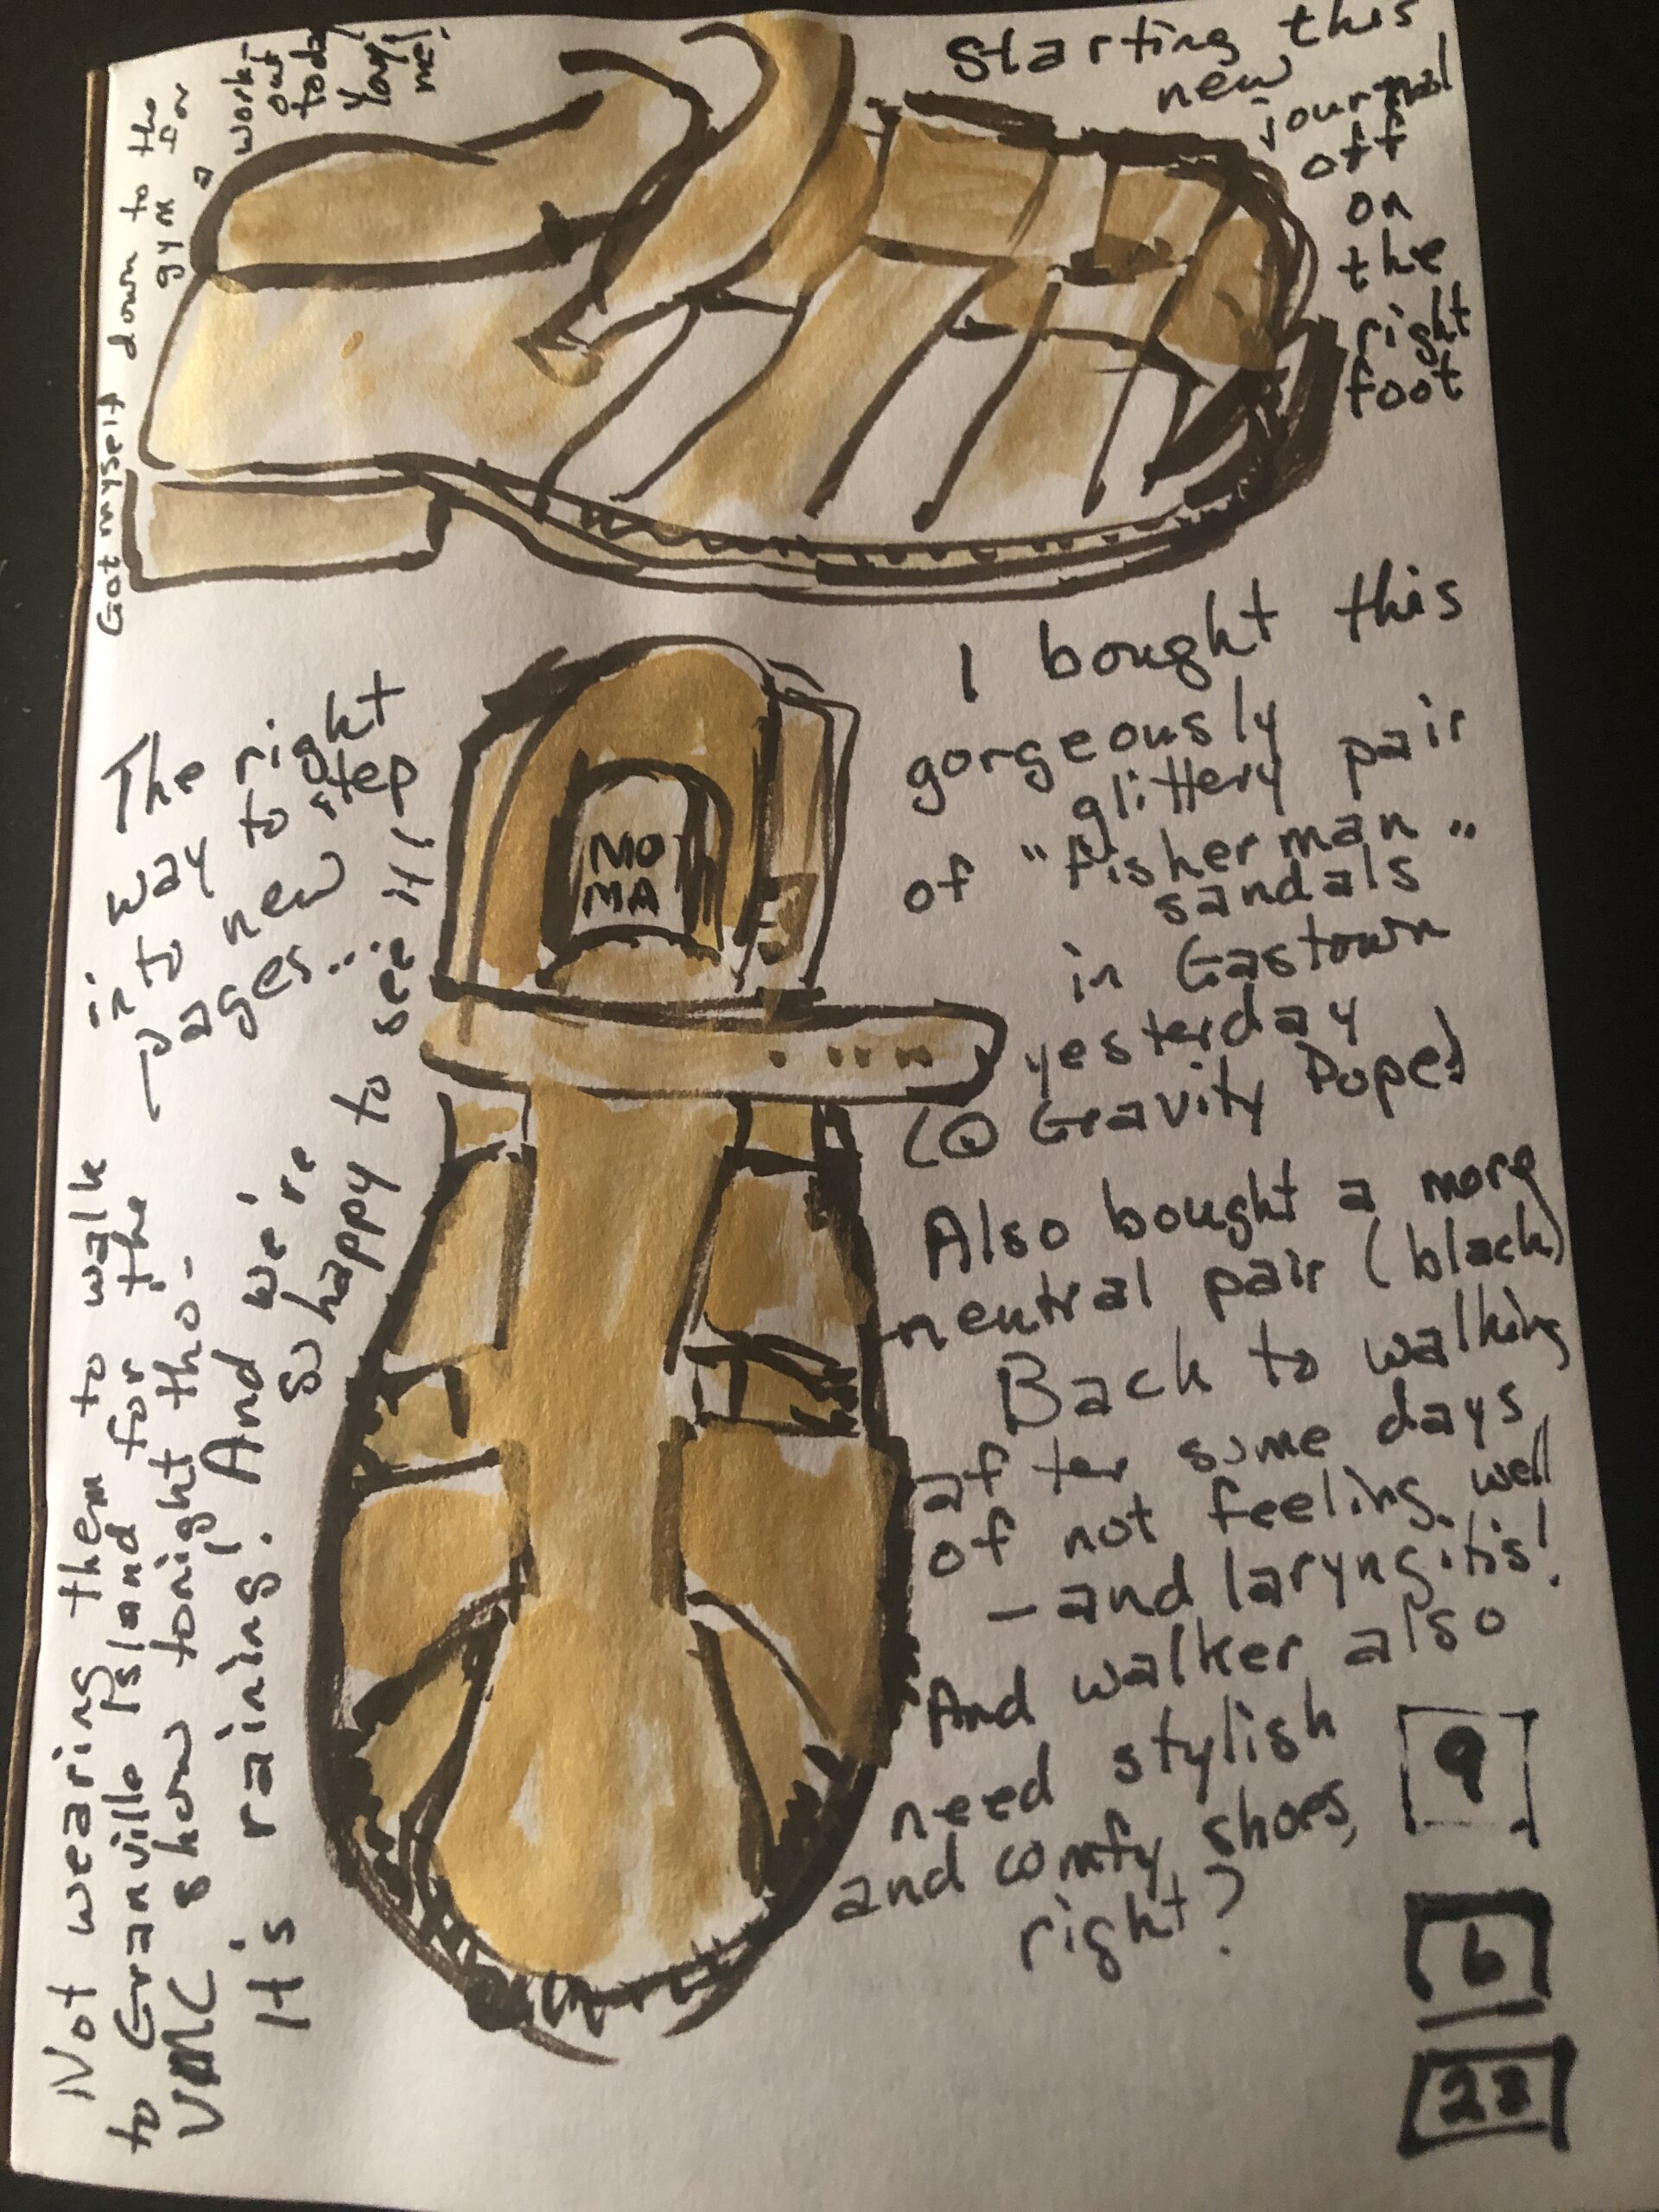 Starting this
new
journal
off
on
the
right
foot
Got myself down to the
gym for
a
work-
out
today
Yay
me!
I bought this
gorgeously
glittery pair
of "fisherman"
sandals
in Gastown
yesterday
(@ Gravity Pope)
Also bought a more
neutral pair (black)
Back to walking
after some days
of not feeling well
- and laryngitis!
And walker also
need stylish
and comfy shoes,
right?
MO
MA
The
way to right
into new step
pages...
Not wearing them to walk
to Granville Island for the
show tonight tho-
It's raining! And we're
so happy to see it!
9
6
23